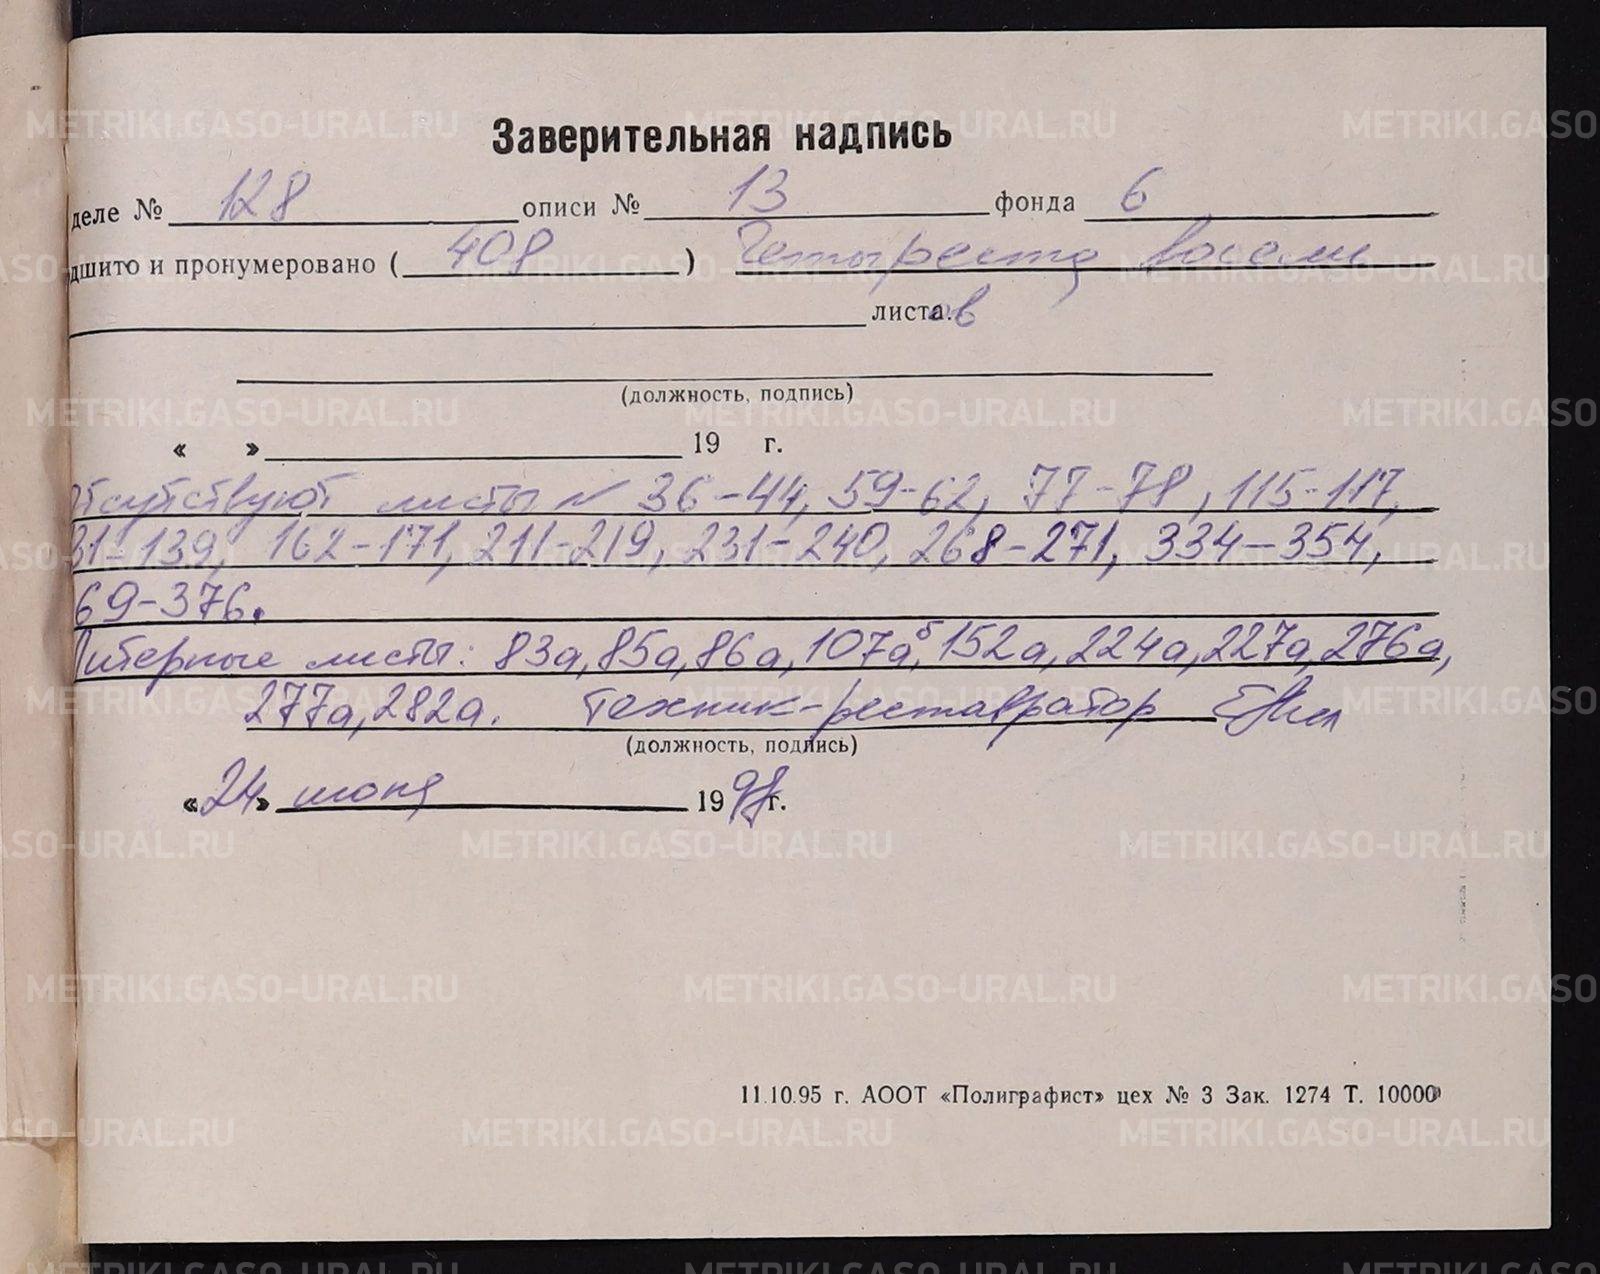 Заверительная надпись
деле № 128 описи № 13 фонда 6
дшито и пронумеровано ( 408 ) Четыреста восемь
листов
(должность, подпись)
« » 19 г.
тсутствуют листы № 36-44, 59-62, 77-78, 115-117,
31-139, 162-171, 211-219, 231-240, 268-271, 334-354,
69-376.
Литерные листы: 83а, 85а, 86а, 107а,б 152а, 224а, 227а, 276а,
277а, 282а. техник-реставратор
(должность, подпись)
«24» июня 1998г.
11.10.95 г. АООТ «Полиграфист» цех № 3 Зак. 1274 Т. 10000
METRIKI.GASO-URAL.RU